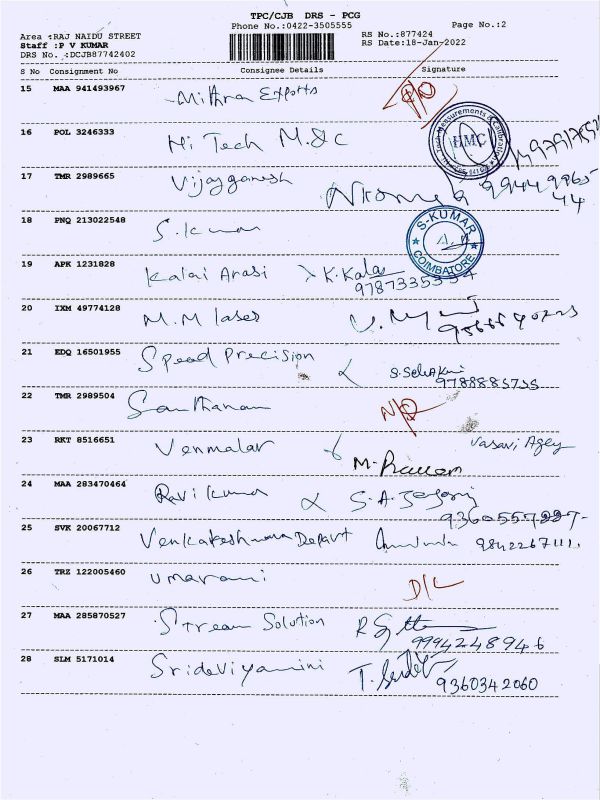 TPC/CJB DRS - PCG
Phone No.:0422-3505555 Page No.:2
Area :RAJ NAIDU STREET RS No.:877424
Staff :P V KUMAR RS Date:18-Jan-2022
DRS No. :DCJB87742402
S No Consignment No Consignee Details Signature
15 MAA 941493967 Mithra Exports
16 POL 3246333 Hi Tech M.&C HMC
17 TMR 2989665 Vijayganesh
44
18 PNQ 213022548 S.kumar S-KUMAR COIMBATORE
19 APK 1231828 Kalai Arasi K.Kala
9787335354
20 IXM 49774128 M.M laser
21 EDQ 16501955 Speed Precision
9788885755
22 TMR 2989504 Santhanam N/S
23 RKT 8516651 Venmalar Vasavi
M.
24 MAA 283470464 Ravi kumar S.A.
25 SVK 20067712 Venkateshwara Depart
26 TRZ 122005460 Umarani D/L
27 MAA 285870527 Stream Solution R
9994248946
28 SLM 5171014 Srideviyamini T.
9360342060